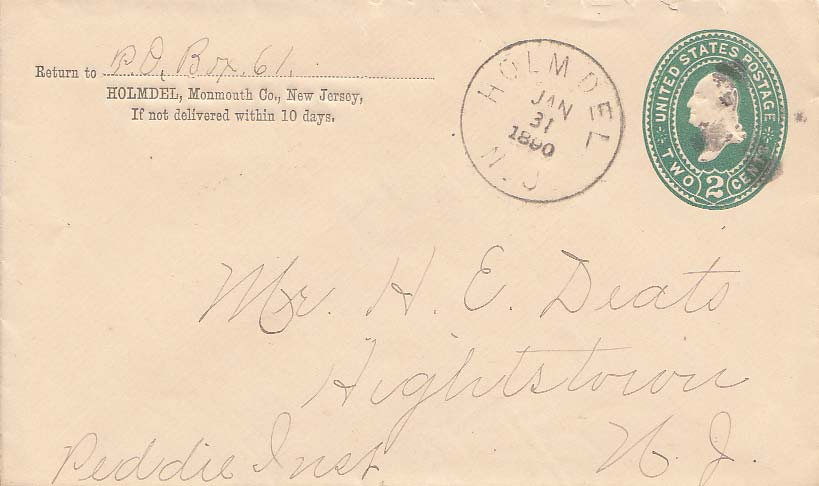 Return to P.O. Box. 61.
HOLMDEL, Monmouth Co., New Jersey,
If not delivered within 10 days.
HOLMDEL
JAN
31
1890
N.J.
UNITED STATES POSTAGE
TWO 2 CENTS
Mr. H. E. Deats
Hightstown
Peddie Inst. N. J.